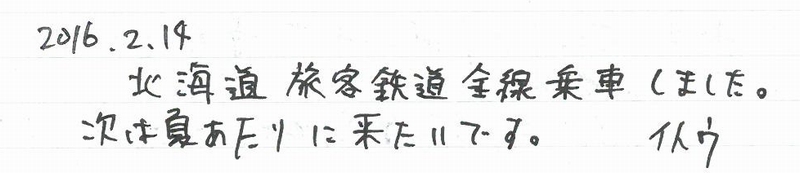 2016.2.14
北海道旅客鉄道全線乗車しました。
次は夏あたりに来たいです。